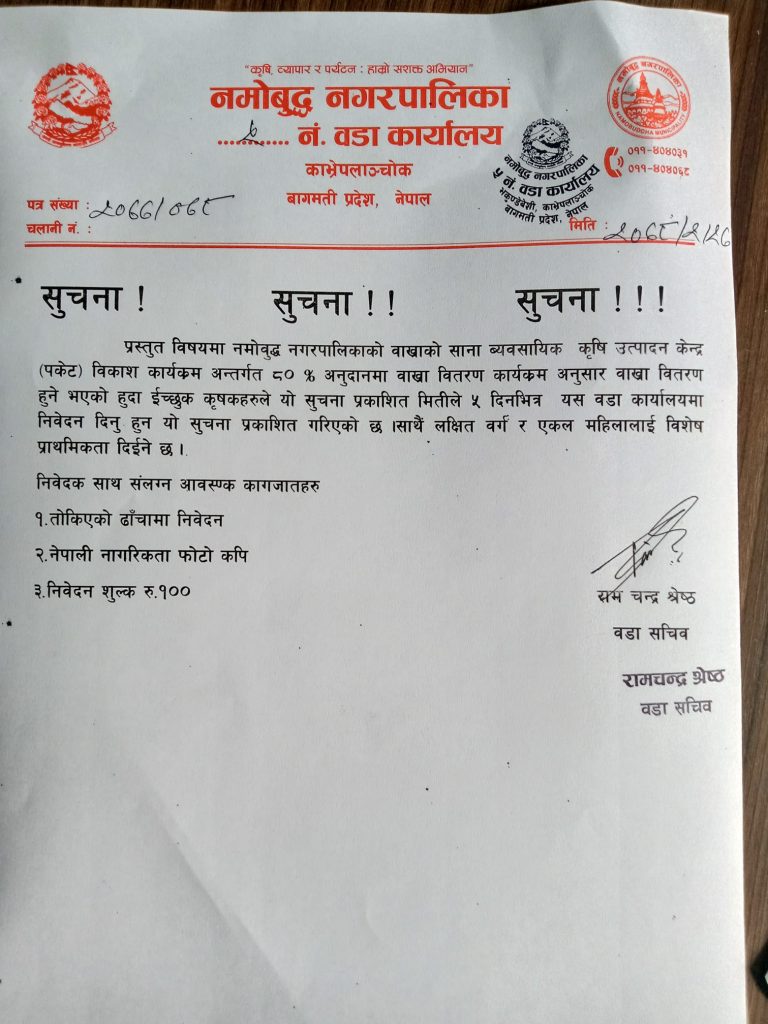 "कृषि, व्यापार र पर्यटन : हाम्रो सशक्त अभियान"
नमोबुद्ध नगरपालिका
५ नं. वडा कार्यालय
काभ्रेपलाञ्चोक
बागमती प्रदेश, नेपाल
नमोबुद्ध नगरपालिका
NAMOBUDDHA MUNICIPALITY
०११-४०४०३१
०११-४०४०६८
नमोबुद्ध नगरपालिका
५ नं. वडा कार्यालय
भकुण्डेबेशी, काभ्रेपलाञ्चोक
बागमती प्रदेश, नेपाल
पत्र संख्या : २०७७/०७८
चलानी नं. :
मिति : २०७८/२/२७
सुचना ! सुचना ! ! सुचना ! ! !
प्रस्तुत विषयमा नमोवुद्ध नगरपालिकाको वाख्राको साना ब्यवसायिक कृषि उत्पादन केन्द्र
(पकेट) विकाश कार्यक्रम अन्तर्गत ८० % अनुदानमा वाख्रा वितरण कार्यक्रम अनुसार वाख्रा वितरण
हुने भएको हुदा ईच्छुक कृषकहरुले यो सुचना प्रकाशित मितीले ५ दिनभित्र यस वडा कार्यालयमा
निवेदन दिनु हुन यो सुचना प्रकाशित गरिएको छ ।साथैं लक्षित वर्ग र एकल महिलालाई विशेष
प्राथमिकता दिईने छ ।
निवेदक साथ संलग्न आवस्ण्क कागजातहरु
१.तोकिएको ढाँचामा निवेदन
२.नेपाली नागरिकता फोटो कपि
३.निवेदन शुल्क रु.१००
राम चन्द्र श्रेष्ठ
वडा सचिव
रामचन्द्र श्रेष्ठ
वडा सचिव